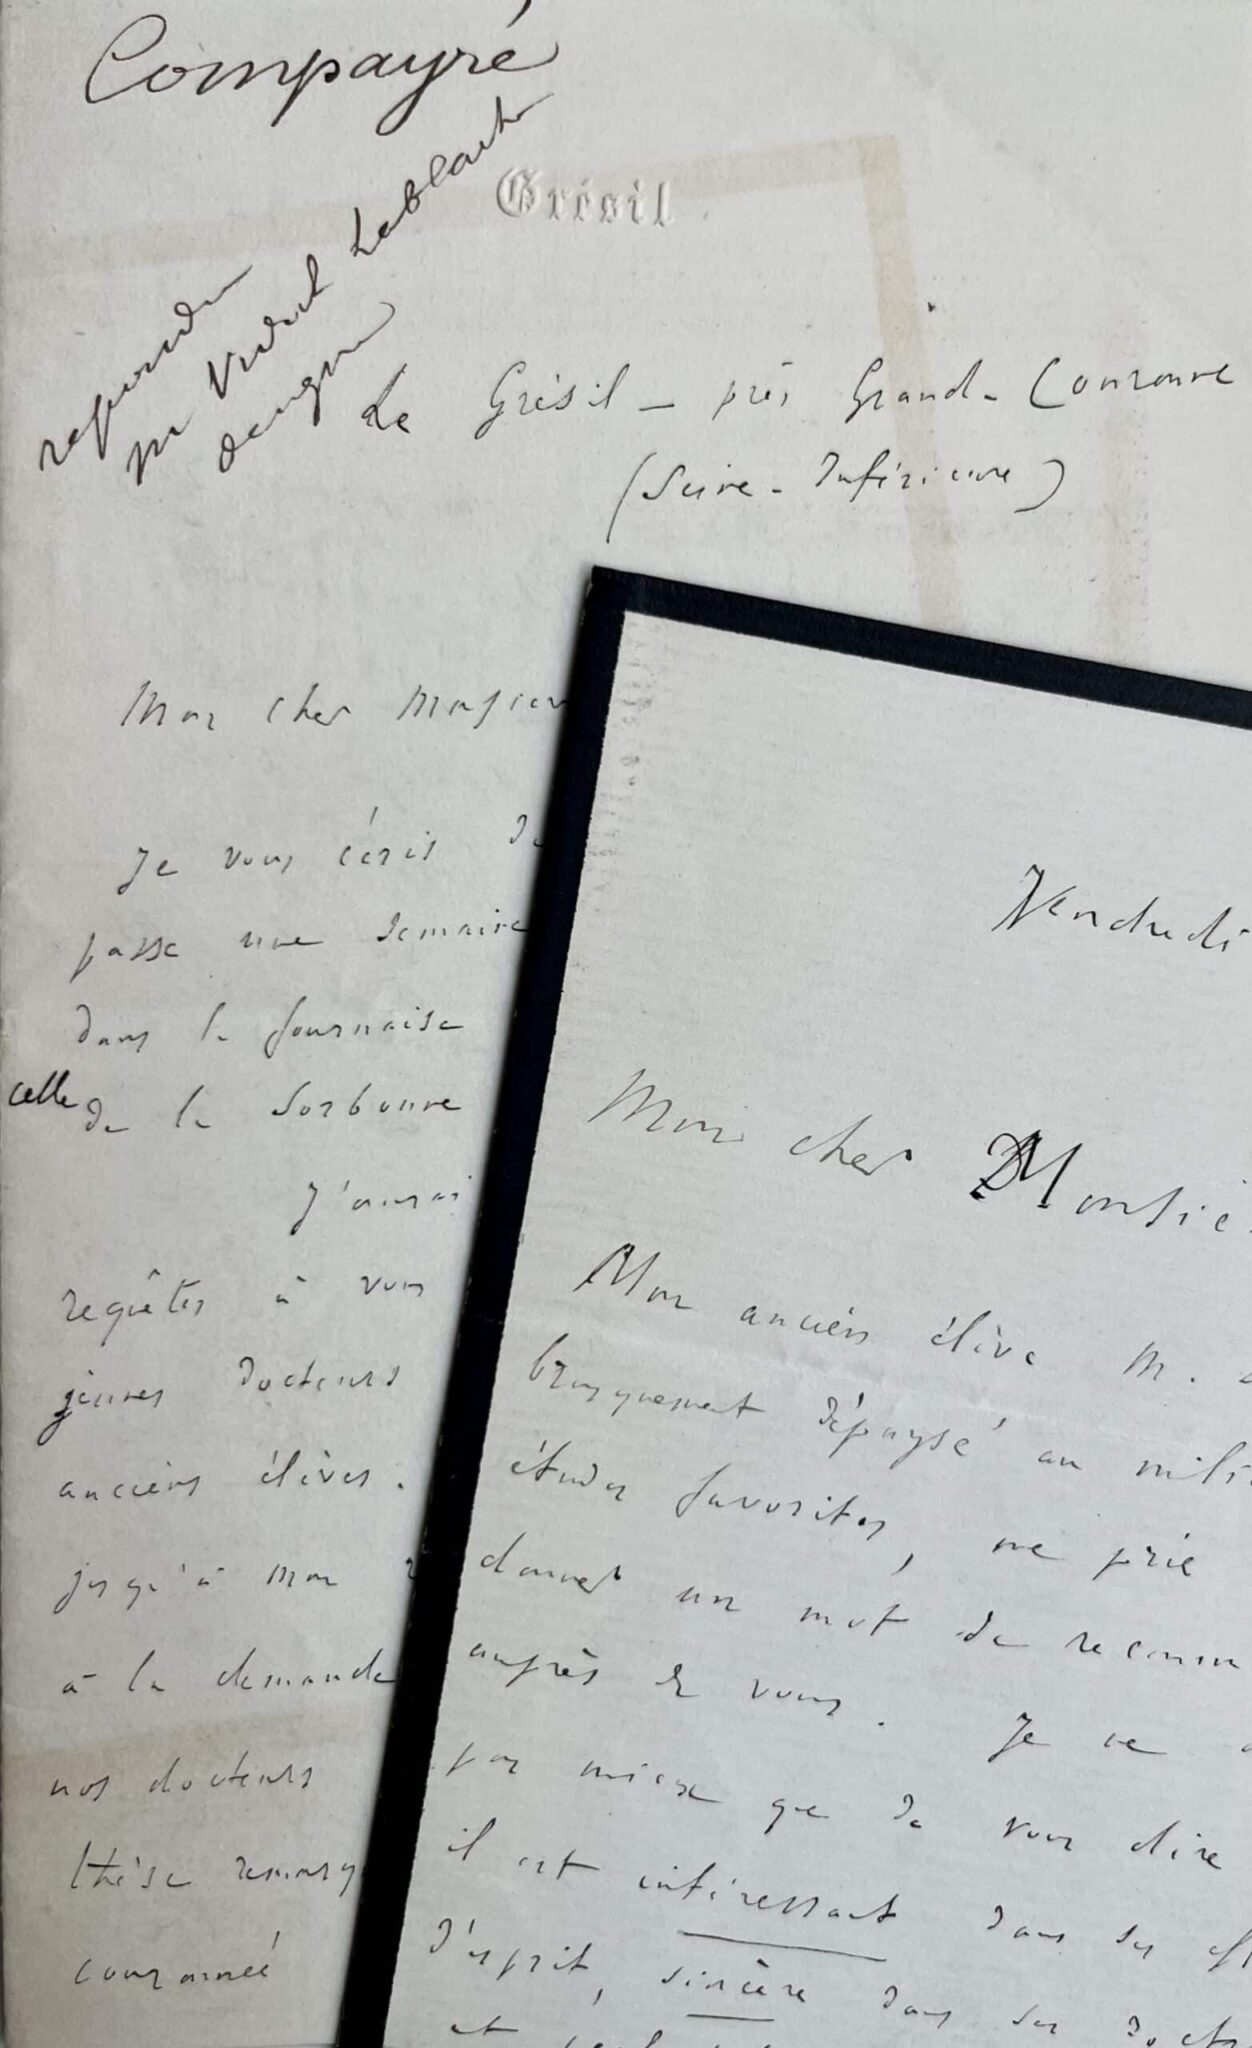 Compayré
Grésil
répondu
Vidal Lablache
Le Grésil - près Grand-Couronne
(Seine-Inférieure)
Mon cher Monsieur
Je vous écris de
passe une semaine
dans la fournaise
celle de la Sorbonne
J'aurai
requêtes à vous
jeunes docteurs
anciens élèves.
jusqu'à mon
à la demande
nos docteurs
thèse remarq
couronné
Vendredi
Mon cher Monsie
Mon ancien élève M.
brusquement dépaysé au mili
études favorites, me prie
donner un mot de recomm
auprès de vous. Je ne
pas mieux que de vous dire
il est intéressant dans ses eff
d'esprit, sincère dans ses doct
et